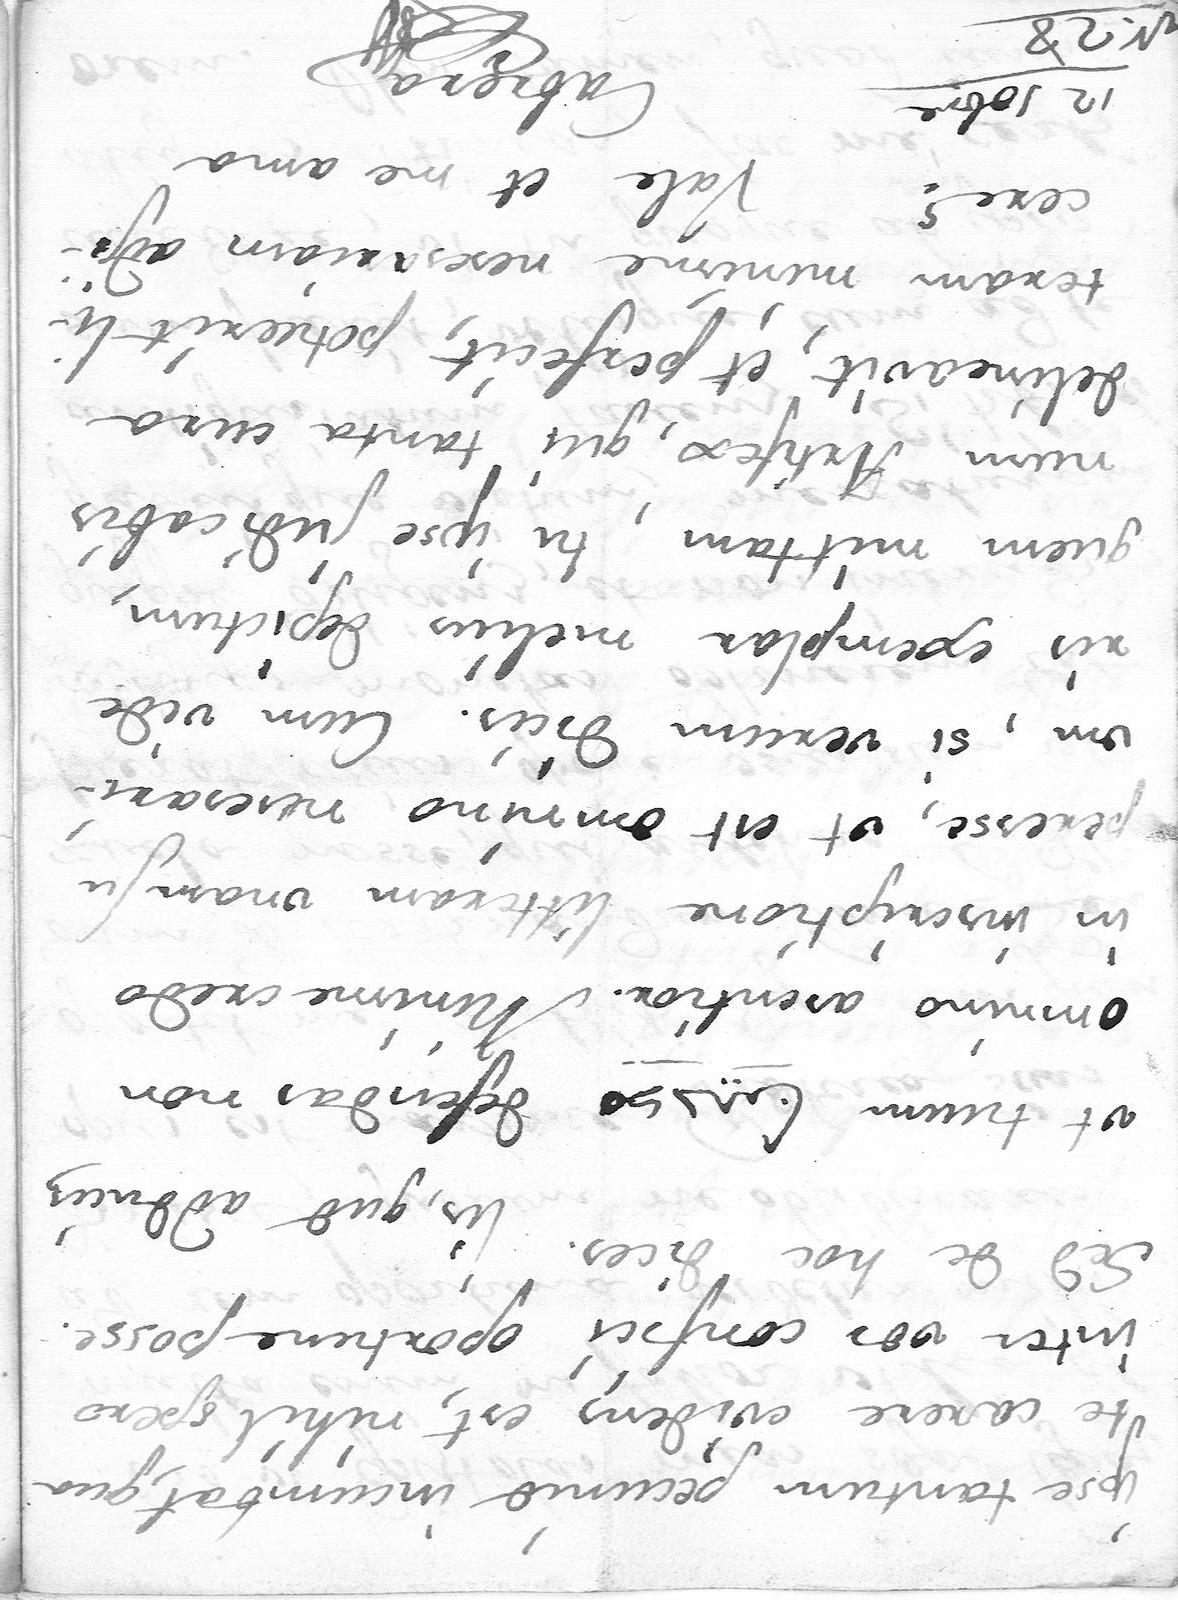 ipse tantum pecunia incumbat, qua
te carere evidens est, nihil spero
inter vos confici oportune posse.
Sed de hoc dices. Iis, quae adducis
ut tuum defendas non
omnino asentior. Minime credo
in inscriptione litteram unam su
peresse, ut est omnino nescesari-
um, si verum dicis. Cum vide
ris exemplar melius depictum,
quem mittam, tu ipse judicabis
num Artifex, qui tanta cura
delineavit, et perfecit, potuerit li-
teram minime nescesariam adji-
cere? Vale et me ama
12 Cabrera
N. 28